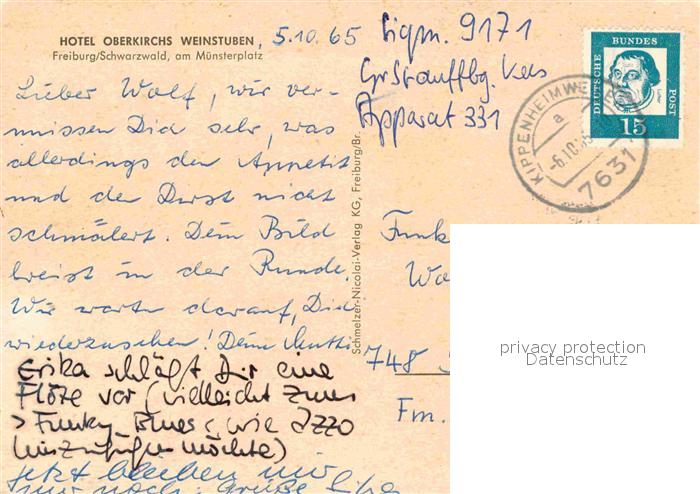 HOTEL OBERKIRCHS WEINSTUBEN, 5.10.65
Freiburg/Schwarzwald, am Münsterplatz
Lieber Wolf, wir ver-
missen Dich sehr, was
allerdings den Appetit
und den Durst nicht
schmälert. Dein Bild
kreist in der Runde.
Wir warten darauf, Dich
wiederzusehen! Deine Mutti
Erika schlägt Dir eine
Flöte vor (vielleicht zum
> Funky-Blues <, wie Izzo
hinzufügen möchte)
Jetzt bleiben mir
nur noch Grüße
Sigm. 9171
Apparat 331
DEUTSCHE BUNDES POST
15
KIPPENHEIMWEILER
a
-6.10.65
7631
Schmelzer-Nicolai-Verlag KG, Freiburg/Br.
Funk
748
Fm.
privacy protection
Datenschutz